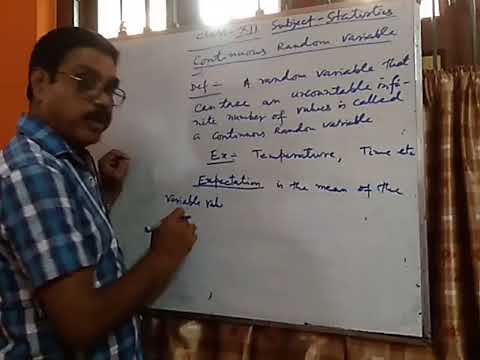 Class-XII Subject-Statistics
Continuous Random Variable
Def:- A random variable that
can take an uncountable infi-
nite number of values is called
a continuous Random variable
Ex:- Temperature, Time etc
Expectation is the mean of the
variable val